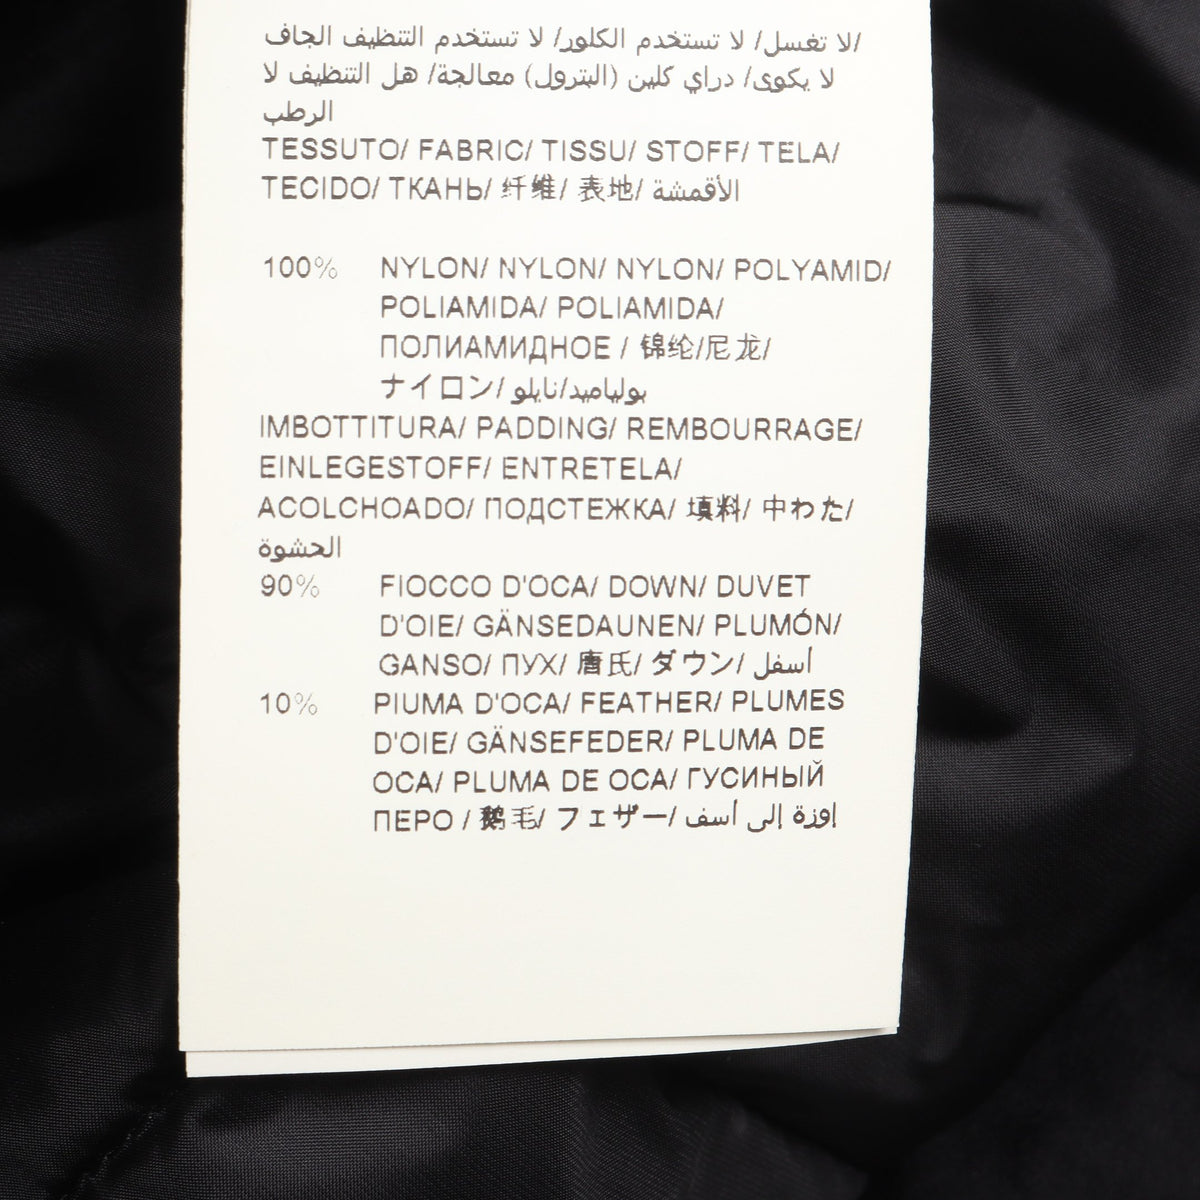 لا تغسل/ لا تستخدم الكلور/ لا تستخدم التنظيف الجاف/
لا يكوى/ دراي كلين (البترول) معالجة/ هل التنظيف لا
الرطب
TESSUTO/ FABRIC/ TISSU/ STOFF/ TELA/
TECIDO/ ТКАНЬ/ 纤维/ 表地/ الأقمشة
100% NYLON/ NYLON/ NYLON/ POLYAMID/
POLIAMIDA/ POLIAMIDA/
ПОЛИАМИДНОЕ / 锦纶/尼龙/
ナイロン/ بولياميد/نايلو
IMBOTTITURA/ PADDING/ REMBOURRAGE/
EINLEGESTOFF/ ENTRETELA/
ACOLCHOADO/ ПОДСТЕЖКА/ 填料/ 中わた/
الحشوة
90% FIOCCO D'OCA/ DOWN/ DUVET
D'OIE/ GÄNSEDAUNEN/ PLUMÓN/
GANSO/ ПУХ/ 唐氏/ ダウン/ أسفل
10% PIUMA D'OCA/ FEATHER/ PLUMES
D'OIE/ GÄNSEFEDER/ PLUMA DE
OCA/ PLUMA DE OCA/ ГУСИНЫЙ
ПЕРО / 鹅毛/ フェザー/ إوزة إلى أسف